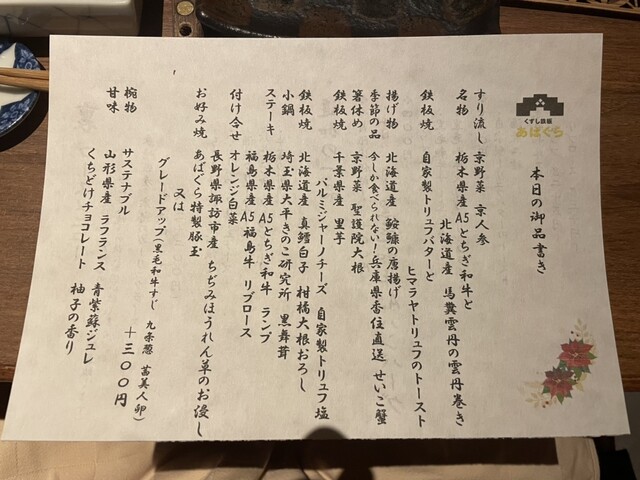 くずし鉄板
あばぐら
本日の御品書き
すり流し 京野菜 京人参
名物 栃木県産A5とちぎ和牛と
北海道産 馬糞雲丹の雲丹巻き
鉄板焼 自家製トリュフバターと
ヒマラヤトリュフのトースト
揚げ物 北海道産 鮟鱇の唐揚げ
季節の品 今しか食べられない!兵庫県香住直送 せいこ蟹
箸休め 京野菜 聖護院大根
鉄板焼 千葉県産 里芋
パルミジャーノチーズ 自家製トリュフ塩
鉄板焼 北海道産 真鱈白子 柑橘大根おろし
小鍋 埼玉県大平きのこ研究所 黒舞茸
ステーキ 栃木県産A5とちぎ和牛 ランプ
福島県産A5福島牛 リブロース
付け合せ オレンジ白菜
長野県諏訪市産 ちぢみほうれん草のお浸し
お好み焼 あばぐら特製豚玉
又は
グレードアップ(黒毛和牛すじ 九条葱 茜美人卵)
+300円
椀物 サステナブル
甘味 山形県産 ラフランス 青紫蘇ジュレ
くちどけチョコレート 柚子の香り